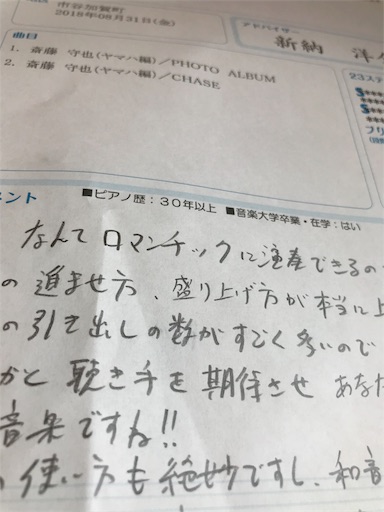 市谷加賀町
2018年08月31日(金)
アドバイザー
新納 洋
曲目
1. 斎藤 守也(ヤマハ編)/PHOTO ALBUM
2. 斎藤 守也(ヤマハ編)/CHASE
23ステ
S****
S****
フリ
メント ■ピアノ歴:30年以上 ■音楽大学卒業・在学:はい
なんてロマンチックに演奏できるの
の進ませ方、盛り上げ方が本当に上
の引き出しの数がすごく多いので
かと聴き手を期待させ あなた
音楽ですね!!
使い方も絶妙ですし、和音